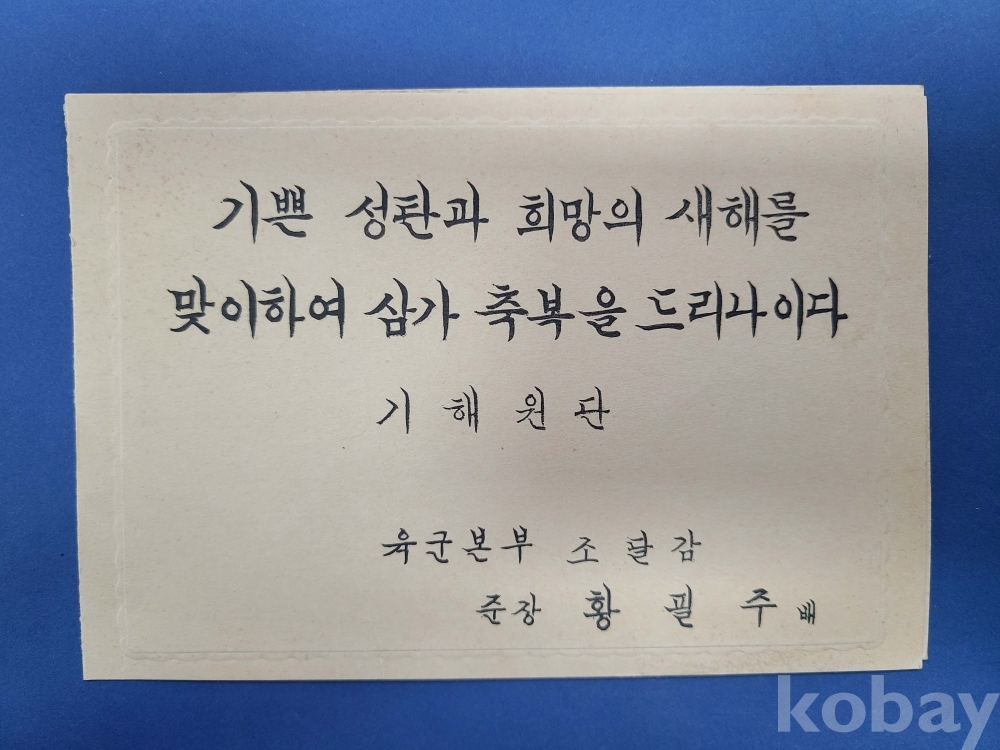 기쁜 성탄과 희망의 새해를
맞이하여 삼가 축복을 드리나이다
기해원단
육군본부 조달감
준장 황필주 배
kobay